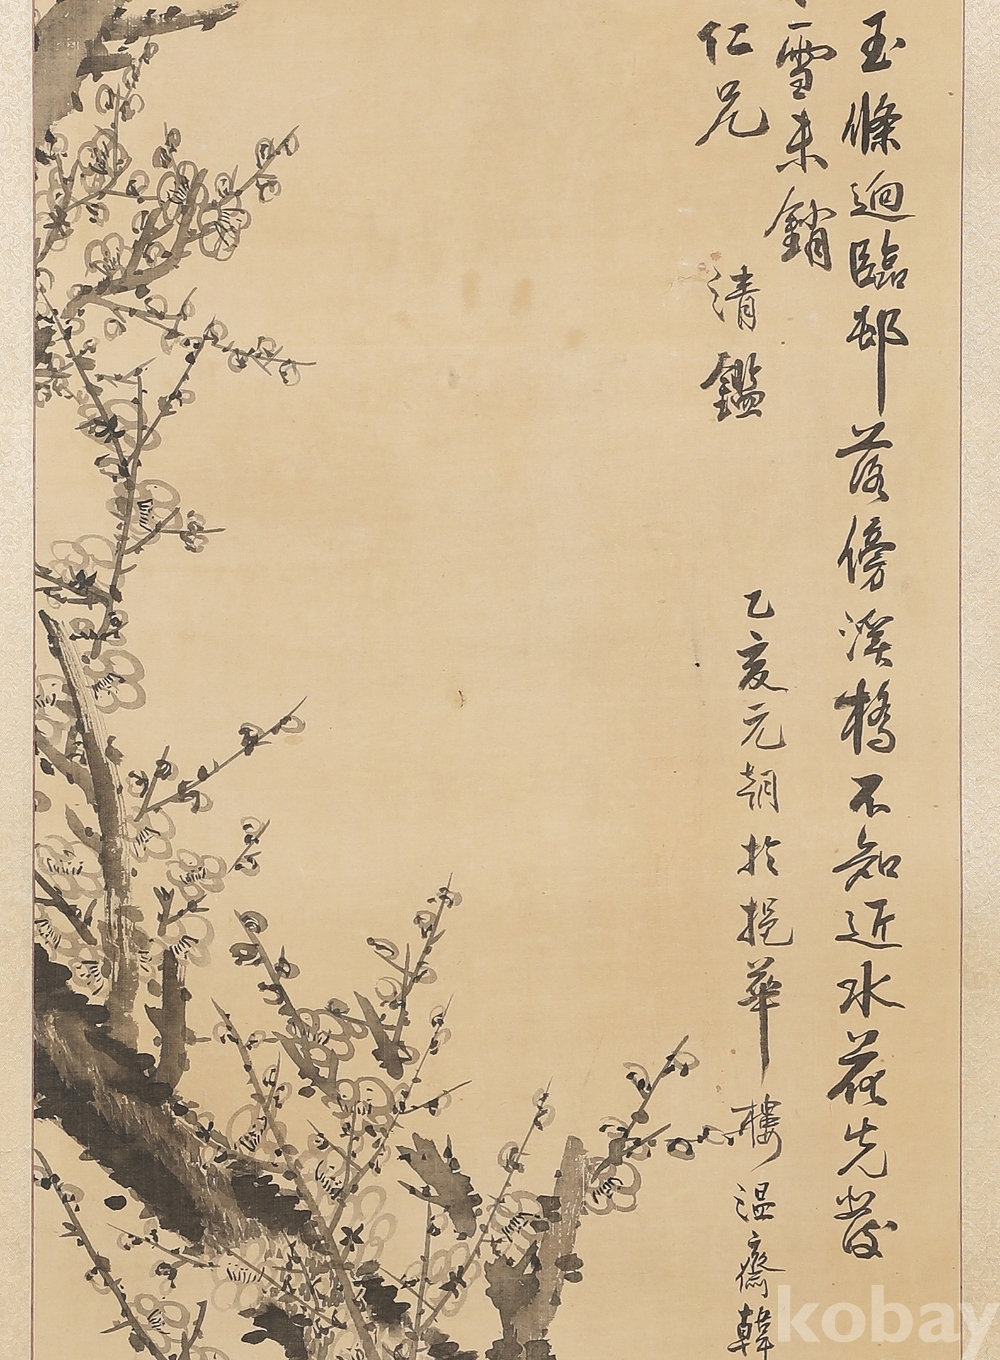 玉條迥臨邨落傍溪橋不知近水花先發
雪未銷
仁兄
清鑑
乙亥元朝於挹華樓溫齋韓
kobay